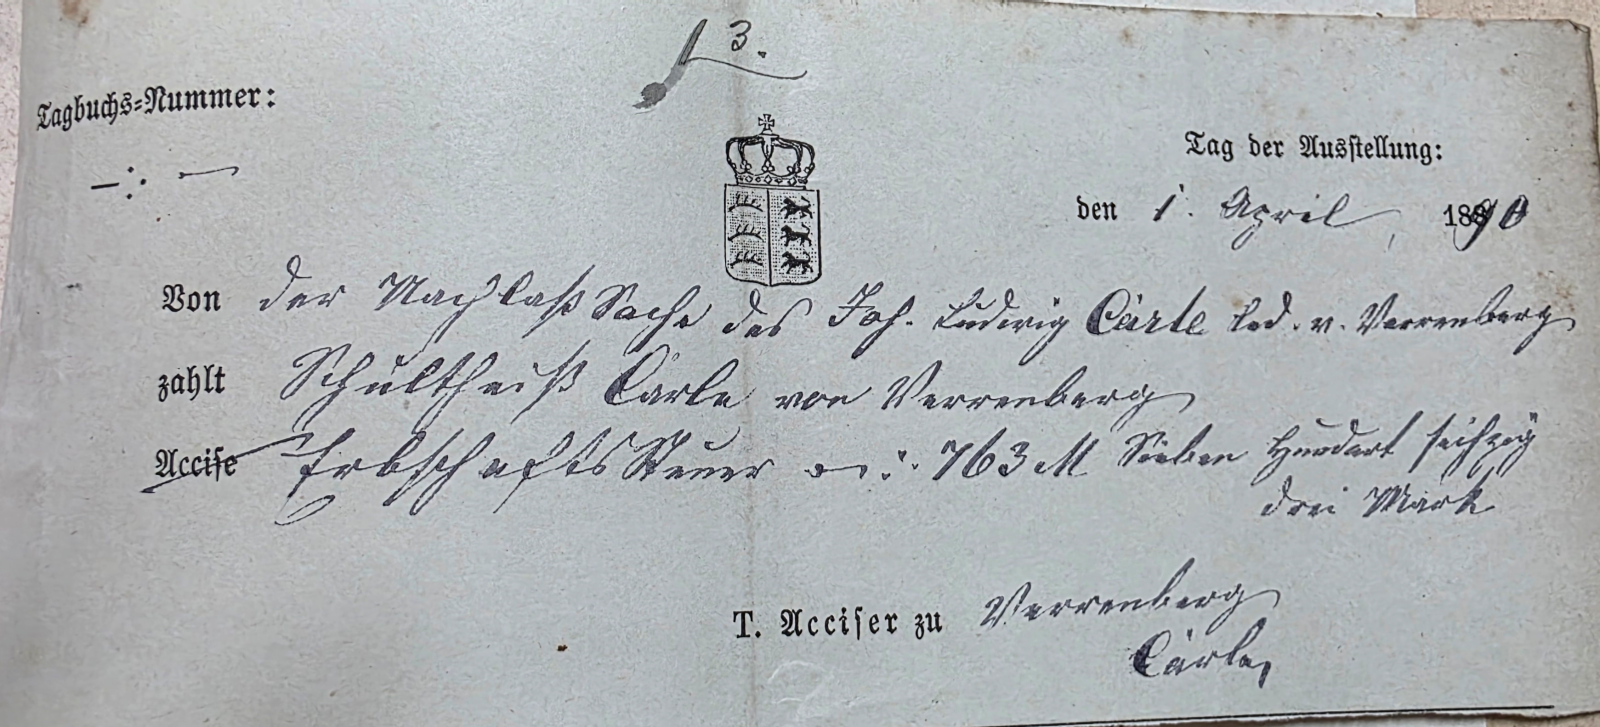 3.
Tagbuchs=Nummer:
— : · —
Tag der Ausstellung:
den 1. April 1890
Von der Nachlaß Sache des Joh. Ludwig Cärle led. v. Verrenberg
zahlt Schultheiß Carle von Verrenberg
Accise Erbschafts Steuer 763 M Sieben Hundert sechzig
drei Mark
T. Acciser zu Verrenberg
Cärle